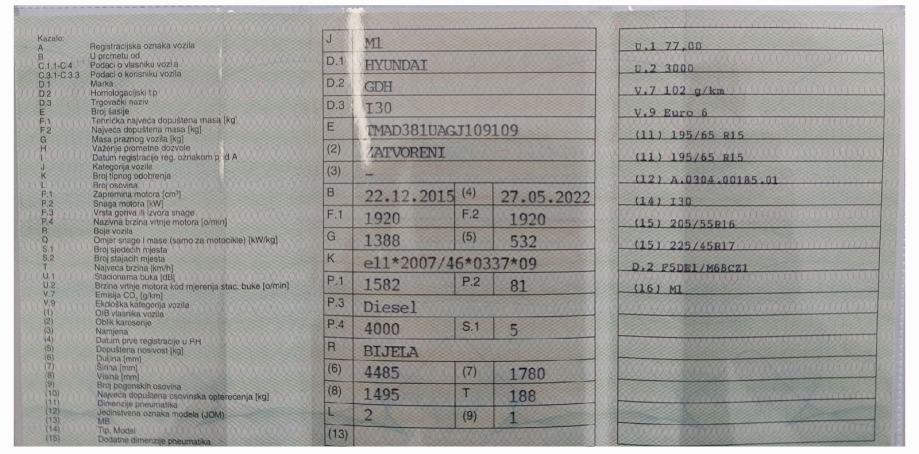 Kazalo:
A Registracijska oznaka vozila
B U prometu od
C.1.1-C.4 Podaci o vlasniku vozila
C.3.1-C.3.3 Podaci o korisniku vozila
D.1 Marka
D.2 Homologacijski tip
D.3 Trgovački naziv
E Broj šasije
F.1 Tehnička najveća dopuštena masa [kg]
F.2 Najveća dopuštena masa [kg]
G Masa praznog vozila [kg]
H Važenje prometne dozvole
I Datum registracije reg. oznakom pod A
J Kategorija vozila
K Broj tipnog odobrenja
L Broj osovina
P.1 Zapremina motora [cm³]
P.2 Snaga motora [kW]
P.3 Vrsta goriva ili izvora snage
P.4 Nazivna brzina vrtnje motora [o/min]
R Boja vozila
Q Omjer snage i mase (samo za motocikle) [kW/kg]
S.1 Broj sjedećih mjesta
S.2 Broj stajaćih mjesta
T Najveća brzina [km/h]
U.1 Stacionarna buka [dB]
U.2 Brzina vrtnje motora kod mjerenja stac. buke [o/min]
V.7 Emisija CO₂ [g/km]
V.9 Ekološka kategorija vozila
(1) OIB vlasnika vozila
(2) Oblik karoserije
(3) Namjena
(4) Datum prve registracije u RH
(5) Dopuštena nosivost [kg]
(6) Duljina [mm]
(7) Širina [mm]
(8) Visina [mm]
(9) Broj pogonskih osovina
(10) Najveća dopuštena osovinska opterećenja [kg]
(11) Dimenzije pneumatika
(12) Jedinstvena oznaka modela (JOM)
(13) MB
(14) Tip, Model
(15) Dodatne dimenzije pneumatika
J M1
D.1 HYUNDAI
D.2 GDH
D.3 I30
E TMAD381UAGJ109109
(2) ZATVORENI
(3) –
B 22.12.2015 (4) 27.05.2022
F.1 1920 F.2 1920
G 1388 (5) 532
K e11*2007/46*0337*09
P.1 1582 P.2 81
P.3 Diesel
P.4 4000 S.1 5
R BIJELA
(6) 4485 (7) 1780
(8) 1495 T 188
L 2 (9) 1
(13)
U.1 77,00
U.2 3000
V.7 102 g/km
V.9 Euro 6
(11) 195/65 R15
(11) 195/65 R15
(12) A.0304.00185.01
(14) I30
(15) 205/55R16
(15) 225/45R17
D.2 F5DE1/M68CZ1
(16) M1